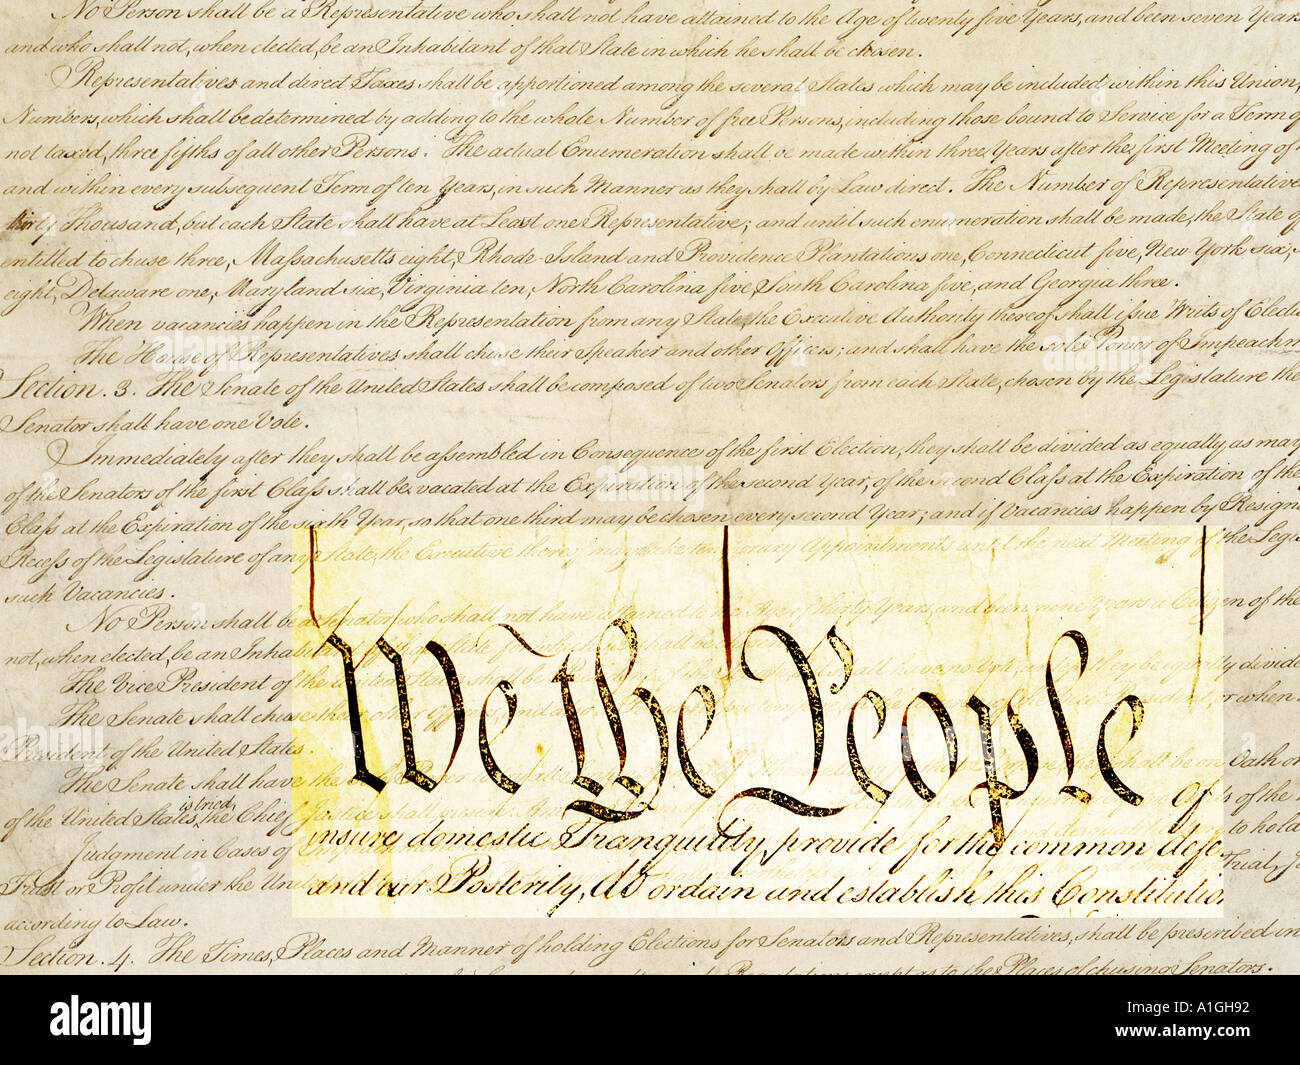 No Person shall be a Representative who shall not have attained to the Age of twenty five Years, and been seven Years
and who shall not, when elected, be an Inhabitant of that State in which he shall be chosen.
Representatives and direct Taxes shall be apportioned among the several States which may be included within this Union,
Numbers, which shall be determined by adding to the whole Number of free Persons, including those bound to Service for a Term of
not taxed, three fifths of all other Persons. The actual Enumeration shall be made within three Years after the first Meeting of
and within every subsequent Term of ten Years, in such Manner as they shall by Law direct. The Number of Representatives
thirty Thousand, but each State shall have at Least one Representative; and until such enumeration shall be made, the State of
entitled to chuse three, Massachusetts eight, Rhode-Island and Providence Plantations one, Connecticut five, New-York six,
eight, Delaware one, Maryland six, Virginia ten, North Carolina five, South Carolina five, and Georgia three.
When vacancies happen in the Representation from any State, the Executive Authority thereof shall issue Writs of Electi
The House of Representatives shall chuse their Speaker and other Officers; and shall have the sole Power of Impeachm
Section. 3. The Senate of the United States shall be composed of two Senators from each State, chosen by the Legislature the
Senator shall have one Vote.
Immediately after they shall be assembled in Consequence of the first Election, they shall be divided as equally as may
of the Senators of the first Class shall be vacated at the Expiration of the second Year, of the second Class at the Expiration of the
Class at the Expiration of the sixth Year, so that one third may be chosen every second Year; and if Vacancies happen by Resigna
Recess of the Legislature of any State, the Executive thereof may make temporary Appointments until the next Meeting of the Legis
such Vacancies.
No Person shall be a Senator who shall not have attained to the Age of thirty Years, and been nine Years a Citizen of the
not, when elected, be an Inhab
The Vice President of the
The Senate shall chuse
President of the United States.
The Senate shall have the
of the United States is tried, the Chief Justice shall
Judgment in Cases of
Trust or Profit under the Uni
according to Law.
We the People
of
insure domestic Tranquility, provide for the common defe
and our Posterity, do ordain and establish this Constitution
Section. 4. The Times, Places and Manner of holding Elections for Senators and Representatives, shall be prescribed in
the Places of chusing Senators.
alamy
Image ID: A1GH92
www.alamy.com